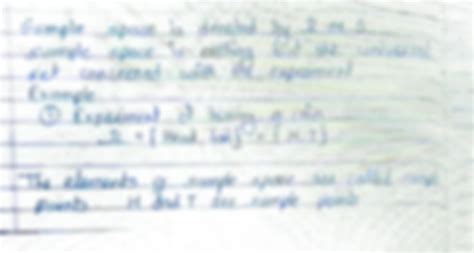 Sample space is denoted by Ω or S
sample space is nothing but the universal
set concerned with the experiment
Example
① Experiment of tossing a coin
Ω = { Head, tail } = { H, T }
The elements of sample space are called sample
points H and T are sample points